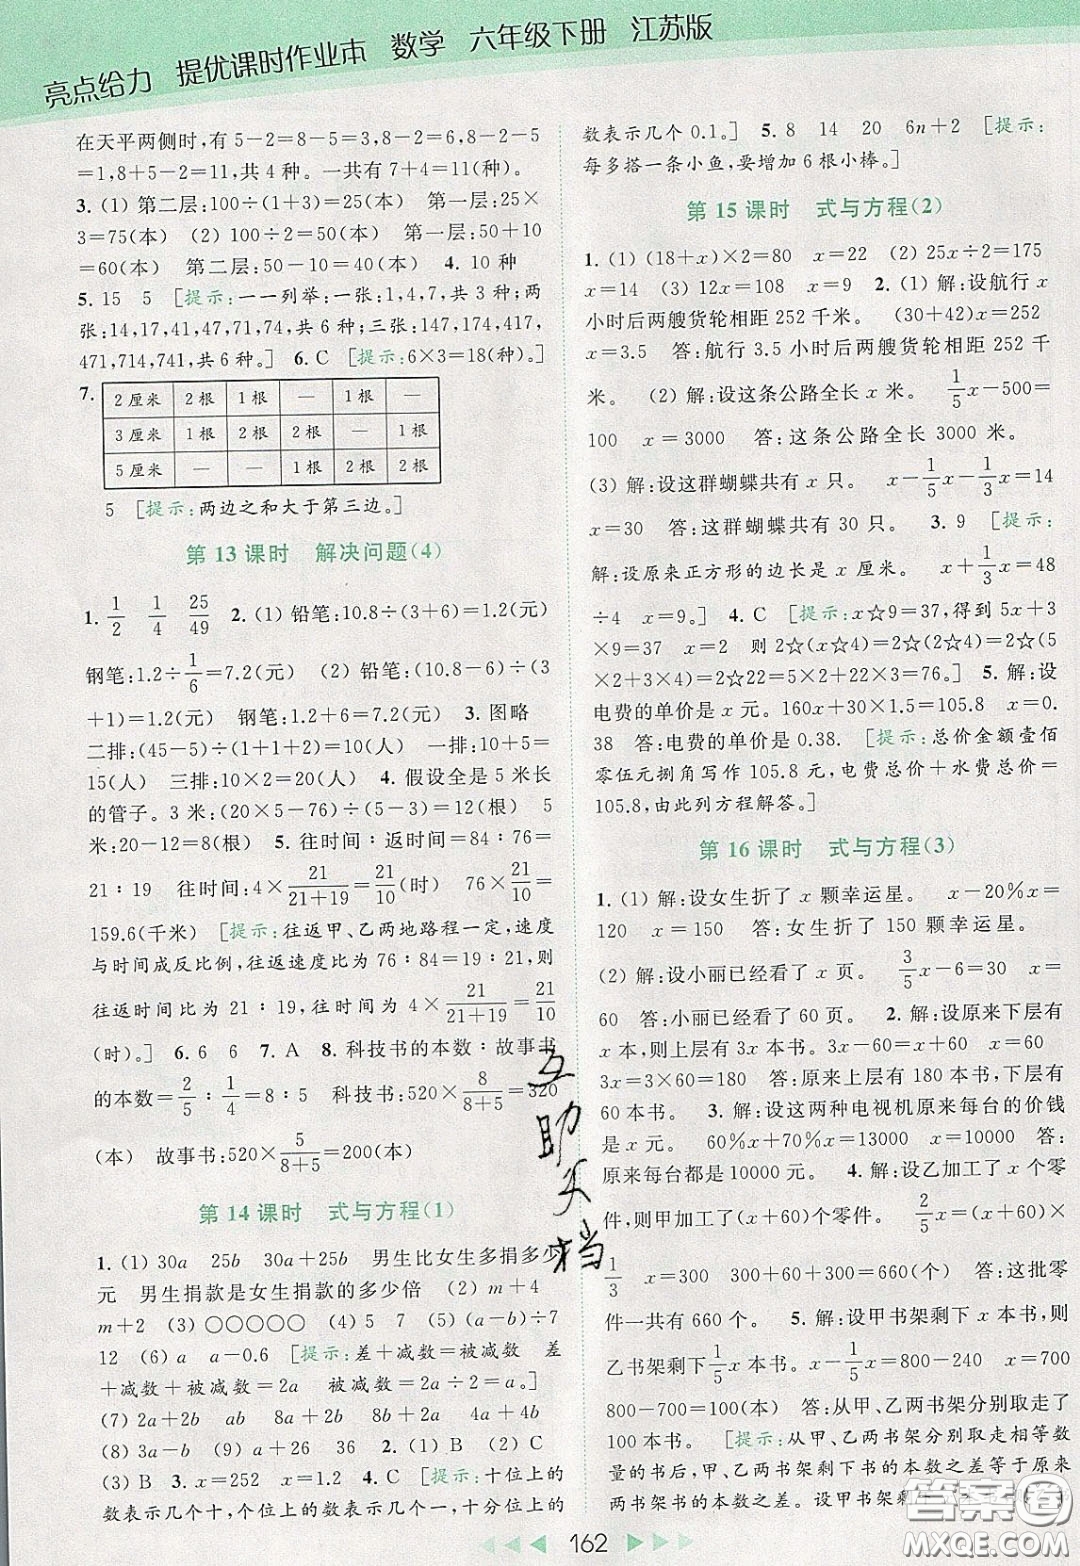 亮点给力 提优课时作业本 数学 六年级下册 江苏版
在天平两侧时,有 5-2=8-5=3,8-2=6,8-2-5
=1,8+5-2=11,共 4 种。一共有 7+4=11(种)。
3. (1) 第二层:100÷(1+3)=25(本) 第一层:25×
3=75(本) (2) 100÷2=50(本) 第一层:50+10
=60(本) 第二层:50-10=40(本) 4. 10 种
5. 15 5 [提示:一一列举:一张:1,4,7,共 3 种;两
张:14,17,41,47,71,74,共 6 种;三张:147,174,417,
471,714,741,共 6 种。] 6. C [提示:6×3=18(种)。]
7.
2 厘米 2 根 1 根 — 1 根 —
3 厘米 1 根 2 根 2 根 — 1 根
5 厘米 — — 1 根 2 根 2 根
5 [提示:两边之和大于第三边。]
第 13 课时 解决问题(4)
1. 1/2 1/4 25/49 2. (1) 铅笔:10.8÷(3+6)=1.2(元)
钢笔:1.2÷1/6=7.2(元) (2) 铅笔:(10.8-6)÷(3
+1)=1.2(元) 钢笔:1.2+6=7.2(元) 3. 图略
二排:(45-5)÷(1+1+2)=10(人) 一排:10+5=
15(人) 三排:10×2=20(人) 4. 假设全是 5 米长
的管子。3 米:(20×5-76)÷(5-3)=12(根) 5
米:20-12=8(根) 5. 往时间∶返时间=84∶76=
21∶19 往时间:4×21/(21+19)=21/10(时) 76×21/10=
159.6(千米) [提示:往返甲、乙两地路程一定,速度
与时间成反比例,往返速度比为 76∶84=19∶21,则
往返时间比为 21∶19,往时间为 4×21/(21+19)=21/10
(时)。] 6. 6 6 7. A 8. 科技书的本数∶故事书
的本数=2/5∶1/4=8∶5 科技书:520×8/(8+5)=320
(本) 故事书:520×5/(8+5)=200(本)
第 14 课时 式与方程(1)
1. (1) 30a 25b 30a+25b 男生比女生多捐多少
元 男生捐款是女生捐款的多少倍 (2) m+4
m+2 (3) ○○○○○ (4) 5 7 (5) (a-b)÷7
12 (6) a a-0.6 [提示:差+减数=被减数 差
+减数+被减数=2a 被减数=2a÷2=a。]
(7) 2a+2b ab 8a+2b 8b 2a+16 8a
(8) 3a-b 26 36 2. (1) B (2) C
(3) B 3. x=252 x=1.2 4. C [提示:十位上的
数表示几个十,个位上的数表示几个一,十分位上的
数表示几个 0.1。] 5. 8 14 20 6n+2 [提示:
每多搭一条小鱼,要增加 6 根小棒。]
第 15 课时 式与方程(2)
1. (1) (18+x)×2=80 x=22 (2) 25x÷2=175
x=14 (3) 12x=108 x=9 2. (1) 解:设航行 x
小时后两艘货轮相距 252 千米。 (30+42)x=252
x=3.5 答:航行 3.5 小时后两艘货轮相距 252 千
米。 (2) 解:设这条公路全长 x 米。 1/5x-500=
100 x=3000 答:这条公路全长 3000 米。
(3) 解:设这群蝴蝶共有 x 只。 x-1/5x-1/3x=14
x=30 答:这群蝴蝶共有 30 只。 3. 9 [提示:
解:设原来正方形的边长是 x 厘米。 x+1/3x=48
÷4 x=9。] 4. C [提示:x☆9=37,得到 5x+3
×9=37 x=2 则 2☆(x☆4)=2☆(2☆4)=2☆(5
×2+3×4)=2☆22=5×2+22×3=76。] 5. 解:设
电费的单价是 x 元。160x+30×1.5=105.8 x=0.
38 答:电费的单价是 0.38。[提示:总价金额壹佰
零伍元捌角写作 105.8 元,电费总价+水费总价=
105.8,由此列方程解答。]
第 16 课时 式与方程(3)
1. (1) 解:设女生折了 x 颗幸运星。 x-20%x=
120 x=150 答:女生折了 150 颗幸运星。
(2) 解:设小丽已经看了 x 页。 3/5x-6=30 x=
60 答:小丽已经看了 60 页。 2. 解:设原来下层有
x 本,则上层有 3x 本书。3x-60=x+60 x=60
3×60=180 答:原来上层有 180 本书,下层有
60 本书。 3. 解:设这两种电视机原来每台的价钱
是 x 元。 60%x+70%x=13000 x=10000 答:
原来每台都是 10000 元。 4. 解:设乙加工了 x 个零
件,则甲加工了(x+60)个零件。 2/5x=(x+60)×
1/3 x=300 300+60+300=660(个) 答:这批零
件一共有 660 个。 5. 解:设甲书架剩下 x 本书,则
乙书架剩下1/5x 本书。 x-1/5x=800-240 x=700
800-700=100(本) 答:从甲、乙两书架分别取走了
100 本书。 [提示:从甲、乙两书架分别取走相等数
量的书后,甲、乙两书架剩下的本数之差等于原来
两书架书的本数之差。设甲书架剩
162
互
助
文
档
答案圈
MXQE.COM